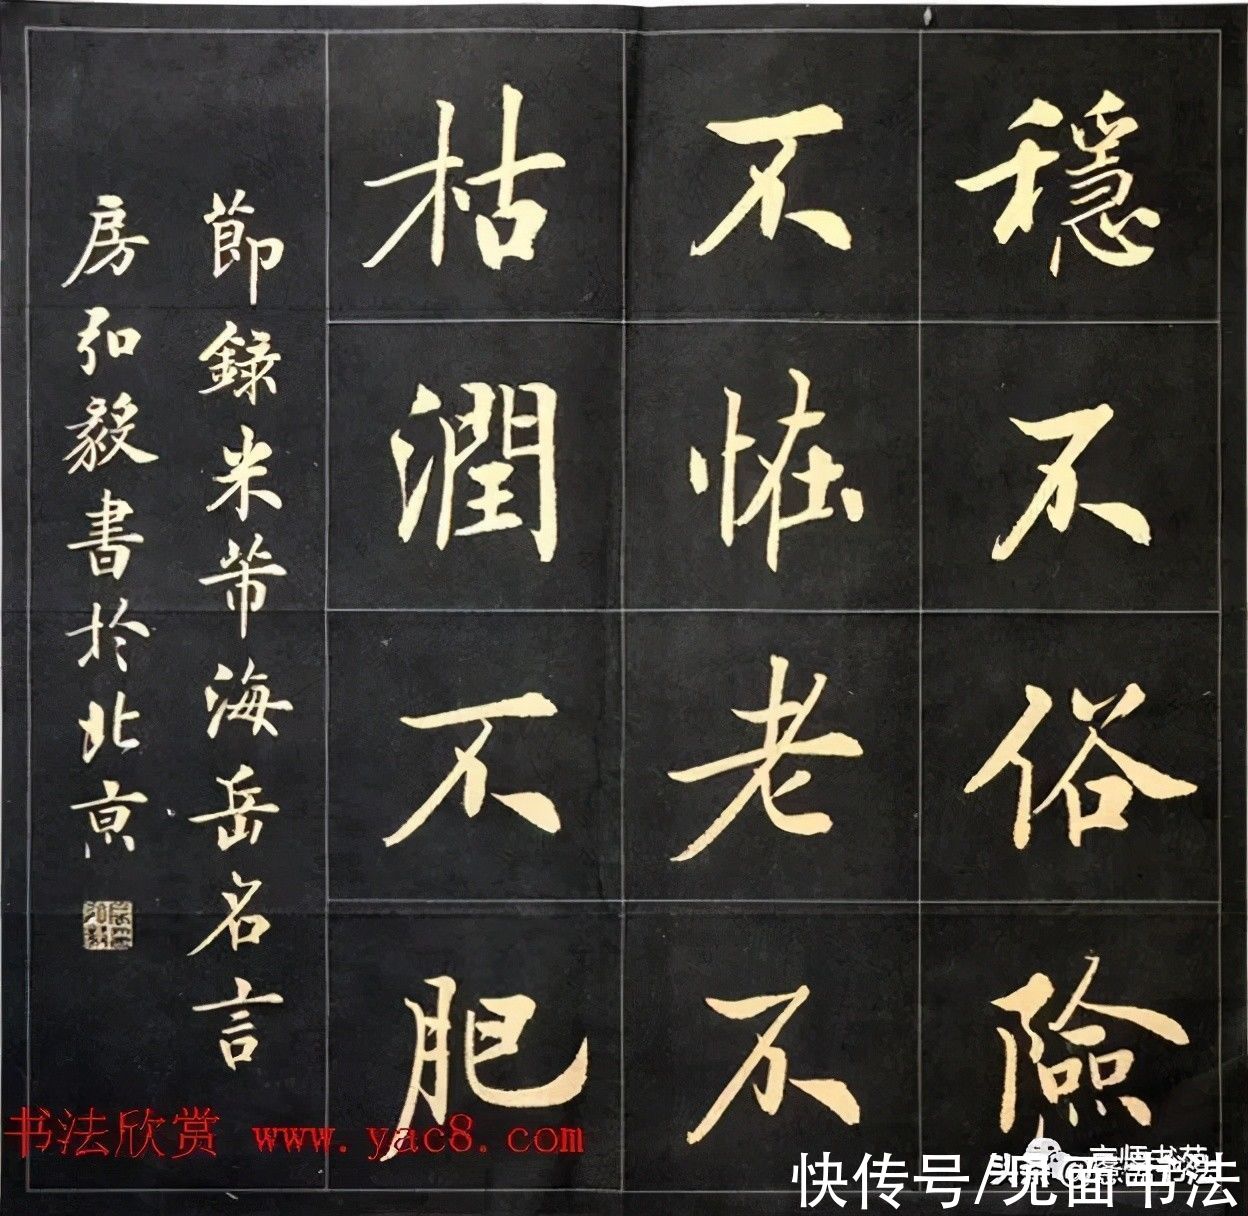 穩不俗險
不恠老不
枯潤不肥
莭録米芾海岳名言
房弘毅書於北京
书法欣赏 www.yac8.com
快传号/见面书法